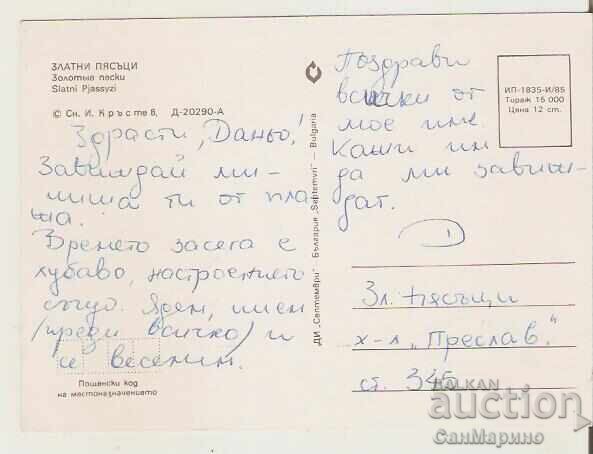 ЗЛАТНИ ПЯСЪЦИ
Золотые пески
Slatni Pjassyzi
© Сн. И. Кръстев, Д-20290-А
Здрасти, Даньо!
Завиждай ми –
пиша ти от пла
жа.
Времето засега е
хубаво, настроението
също. Ядем, пием
/преди всичко/ и
се веселим.
Пощенски код
на местоназначението
ДИ „Септември“ България „Septemvri“ — Bulgaria
Поздрави
всички от
мое име.
Кажи им
да ми завиж-
дат.
Д
ИП-1835-И/85
Тираж 15 000
Цена 12 ст.
Зл. пясъци
х-л „Преслав“
ст. 345
BALKAN
auction
СанМарино